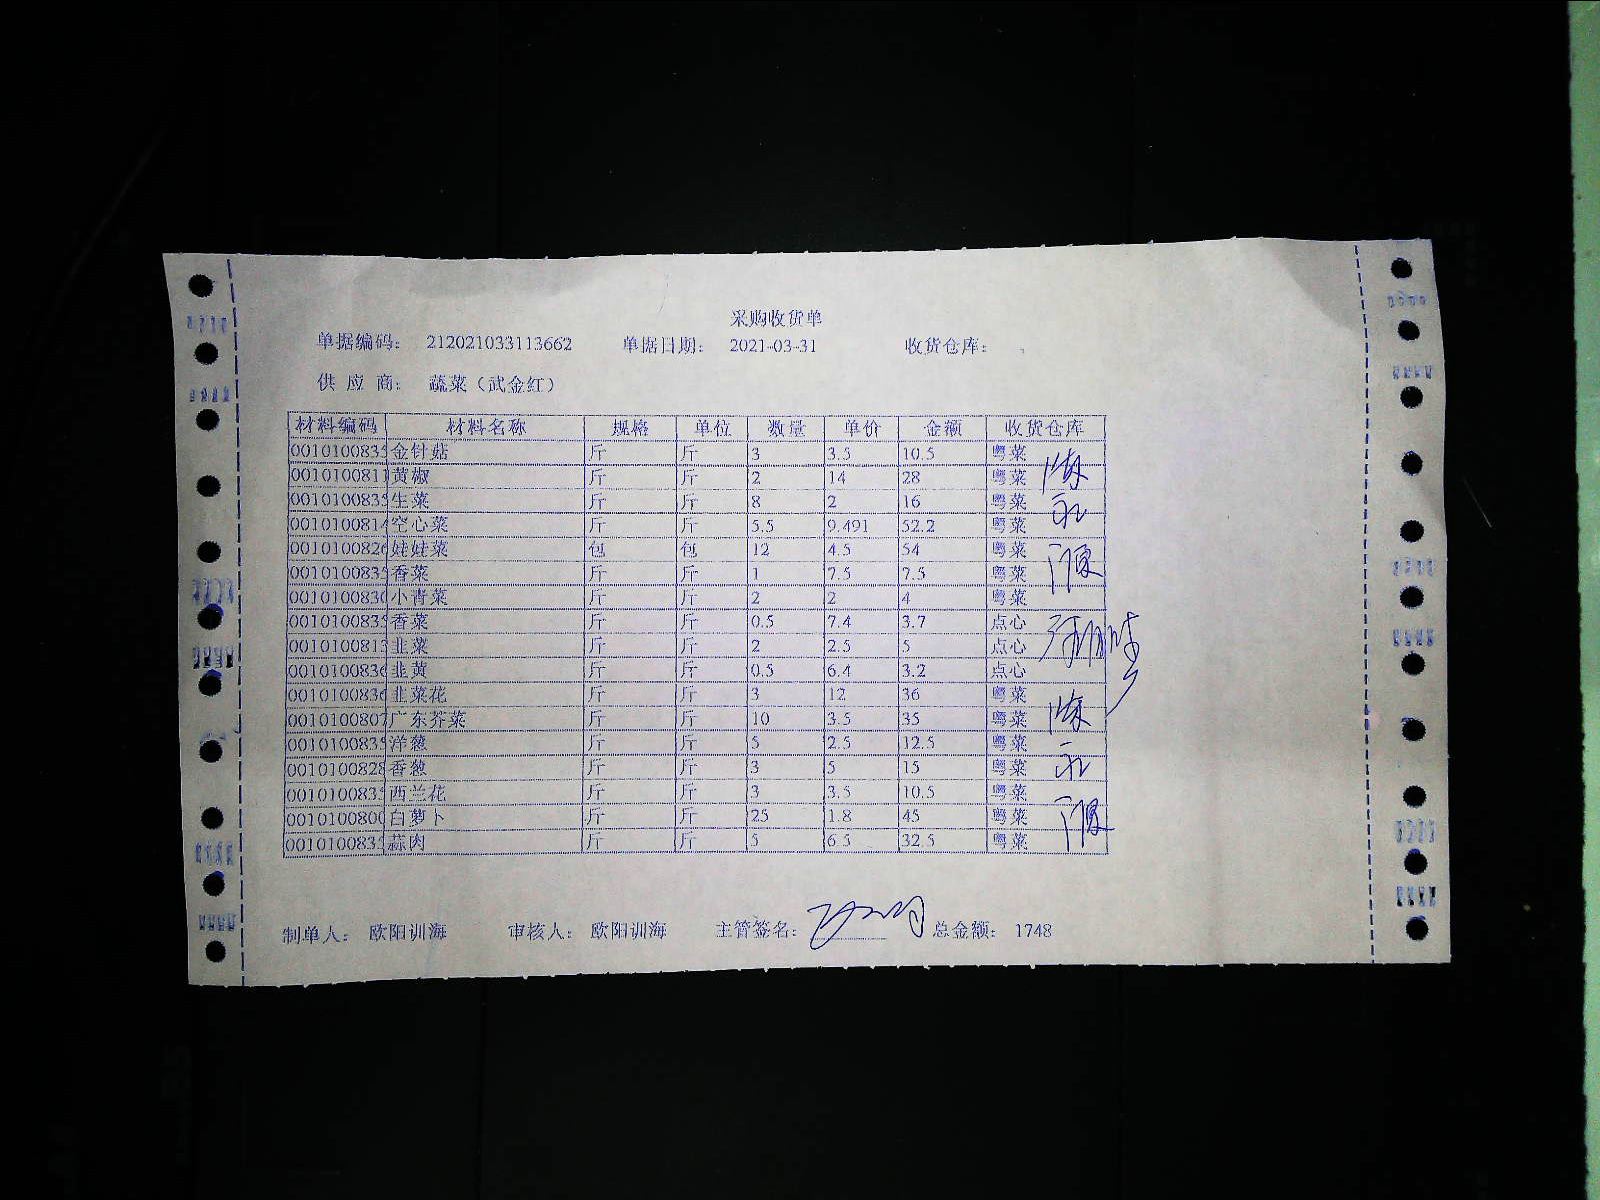 采购收货单
单据编码: 212021033113662 单据日期: 2021-03-31 收货仓库:
供 应 商: 蔬菜（武金红）
材料编码 材料名称 规格 单位 数量 单价 金额 收货仓库
0010100835 金针菇 斤 斤 3 3.5 10.5 粤菜
0010100811 黄椒 斤 斤 2 14 28 粤菜
0010100835 生菜 斤 斤 8 2 16 粤菜
0010100814 空心菜 斤 斤 5.5 9.491 52.2 粤菜
0010100826 娃娃菜 包 包 12 4.5 54 粤菜
0010100835 香菜 斤 斤 1 7.5 7.5 粤菜
0010100830 小青菜 斤 斤 2 2 4 粤菜
0010100835 香菜 斤 斤 0.5 7.4 3.7 点心
0010100813 韭菜 斤 斤 2 2.5 5 点心
0010100836 韭黄 斤 斤 0.5 6.4 3.2 点心
0010100836 韭菜花 斤 斤 3 12 36 粤菜
0010100807 广东芥菜 斤 斤 10 3.5 35 粤菜
0010100835 洋葱 斤 斤 5 2.5 12.5 粤菜
0010100828 香葱 斤 斤 3 5 15 粤菜
0010100835 西兰花 斤 斤 3 3.5 10.5 粤菜
0010100800 白萝卜 斤 斤 25 1.8 45 粤菜
0010100835 蒜肉 斤 斤 5 6.5 32.5 粤菜
制单人: 欧阳训海 审核人: 欧阳训海 主管签名: 总金额: 1748